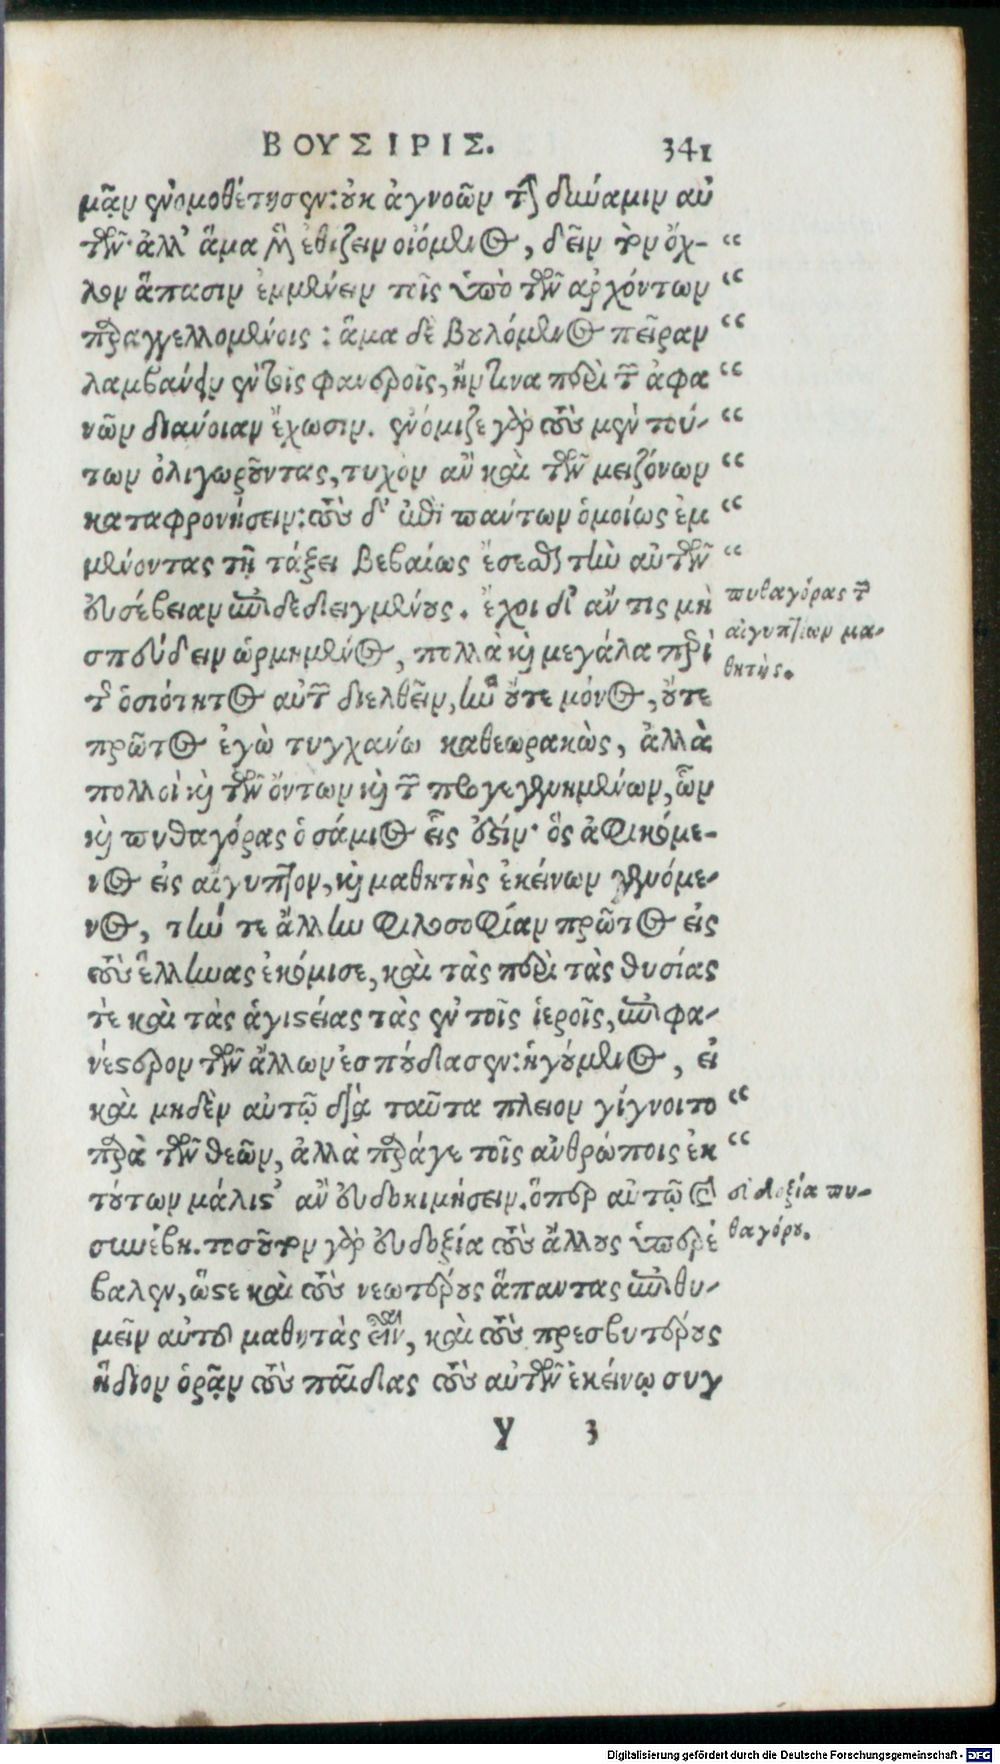 ΒΟΥΣΙΡΙΣ. 341
μᾶν ἐνομοθέτησεν: οὐκ ἀγνοῶν τὴν δύναμιν αὐ
τῶν· ἀλλ' ἅμα μὲν ἐθίζειν οἰόμενος, δεῖν τὸν ὄχ- “
λον ἅπασιν ἐμμένειν τοῖς ὑπὸ τῶν ἀρχόντων “
παραγγελλομένοις : ἅμα δὲ βουλόμενος πεῖραν “
λαμβάνειν ἐν τοῖς φανεροῖς, ἥν τινα περὶ τῶν ἀφα “
νῶν διάνοιαν ἔχωσιν. ἐνόμιζε γὰρ τοὺς μὲν τού- “
των ὀλιγωροῦντας, τυχὸν ἂν καὶ τῶν μειζόνων “
καταφρονήσειν: τοὺς δ' ἐπὶ πάντων ὁμοίως ἐμ “
μένοντας τῇ τάξει βεβαίως ἔσεσθαι τὴν αὐτῶν “
εὐσέβειαν ἐπιδεδειγμένους. ἔχοι δ' ἄν τις μὴ
σπεύδειν ὡρμημένος, πολλὰ καὶ μεγάλα περὶ
τῆς ὁσιότητος αὐτῶν διελθεῖν, ἣν οὔτε μόνος, οὔτε
πρῶτος ἐγὼ τυγχάνω καθεωρακὼς, ἀλλὰ
πολλοὶ καὶ τῶν ὄντων καὶ τῶν προγεγενημένων, ὧν
καὶ πυθαγόρας ὁ σάμιος εἷς ἐστίν· ὃς ἀφικόμε-
νος εἰς αἴγυπτον, καὶ μαθητὴς ἐκείνων γενόμε-
νος, τήν τε ἄλλην φιλοσοφίαν πρῶτος εἰς
τοὺς ἕλληνας ἐκόμισε, καὶ τὰς περὶ τὰς θυσίας
τὲ καὶ τὰς ἁγιστείας τὰς ἐν τοῖς ἱεροῖς, ἐπιφα-
νέστερον τῶν ἄλλων ἐσπούδασεν: ἡγούμενος, εἰ
καὶ μηδὲν αὐτῷ διὰ ταῦτα πλεῖον γίγνοιτο “
παρὰ τῶν θεῶν, ἀλλὰ παράγε τοῖς ἀνθρώποις ἐκ “
τούτων μάλιστ' ἂν εὐδοκιμήσειν. ὅπερ αὐτῷ καὶ
συνέβη. τοσοῦτον γὰρ εὐδοξίᾳ τοὺς ἄλλους ὑπερέ
βαλεν, ὥστε καὶ τοὺς νεωτέρους ἅπαντας ἐπιθυ-
μεῖν αὐτοῦ μαθητὰς εἶναι, καὶ τοὺς πρεσβυτέρους
ἥδιον ὁρᾶν τοὺς παῖδας τοὺς αὐτῶν ἐκείνῳ συγ
y 3
πυθαγόρας τῶν
αἰγυπτίων μα-
θητής.
εὐδοξία πυ-
θαγόρου.
Digitalisierung gefördert durch die Deutsche Forschungsgemeinschaft - DFG